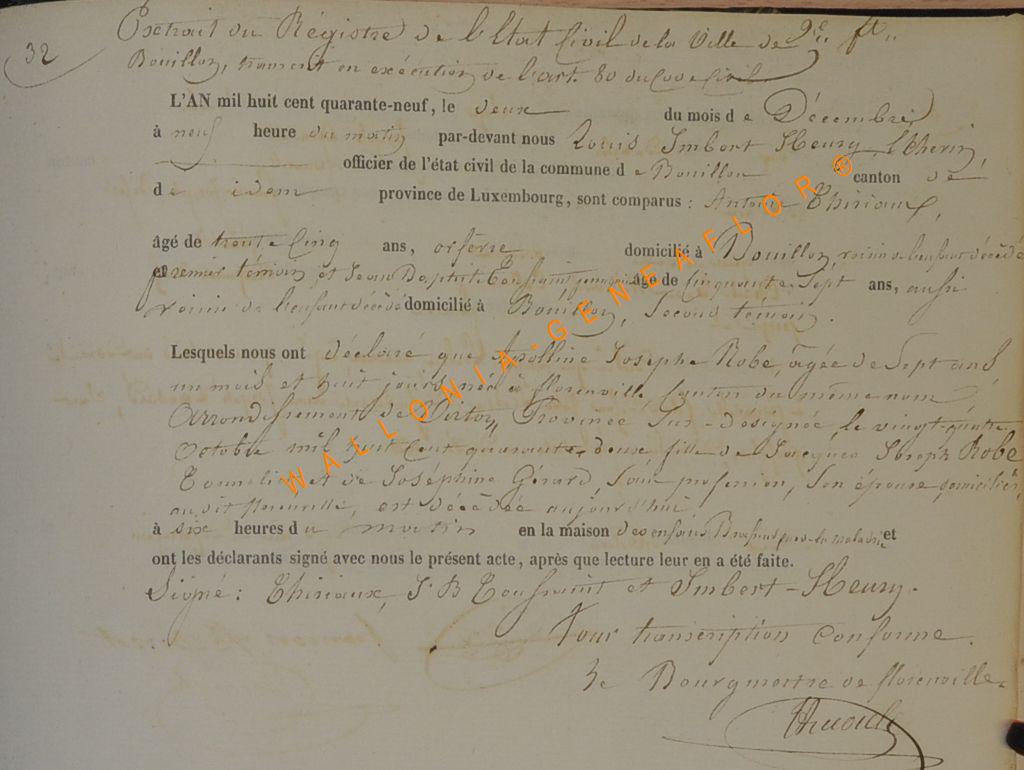 32
Extrait du Régistre de l'Etat Civil de la Ville de
Bouillon, transcrit en exécution de l'art. 80 du Code Civil
L'AN mil huit cent quarante-neuf, le deux du mois d e Décembre
à neuf heure du matin par-devant nous Louis Imbert Henry,
officier de l'état civil de la commune d e Bouillon canton de
d e idem province de Luxembourg, sont comparus : Antoine Thiriaux,
âgé de trente Cinq ans, orfèvre domicilié à Bouillon, voisin de l'enfant décédé
premier témoin, et Jean Baptiste Toussaint âgé de Cinquante Sept ans, aussi
voisin de l'enfant décédé domicilié à Bouillon, Second témoin.
Lesquels nous ont déclaré que Apolline Josephe Robe, âgée de Sept ans
un mois et huit jours, née à florenville, Canton du même nom,
Arrondissement de Virton, Province Sus-désignée, le vingt-quatre
octobre mil huit Cent quarante-deux fille de Jacques Joseph Robe
Tonnelier et de Joséphine Gérard, Sans profession, Son épouse domiciliés
au dit florenville, est décédée aujourd'hui
à six heures du matin en la maison des enfans et
ont les déclarants signé avec nous le présent acte, après que lecture leur en a été faite.
Signé : Thiriaux, J B Toussaint et Imbert-Henry.
Pour transcription Conforme.
Le Bourgmestre de florenville.
WALLONIA-GENEAFLOR®